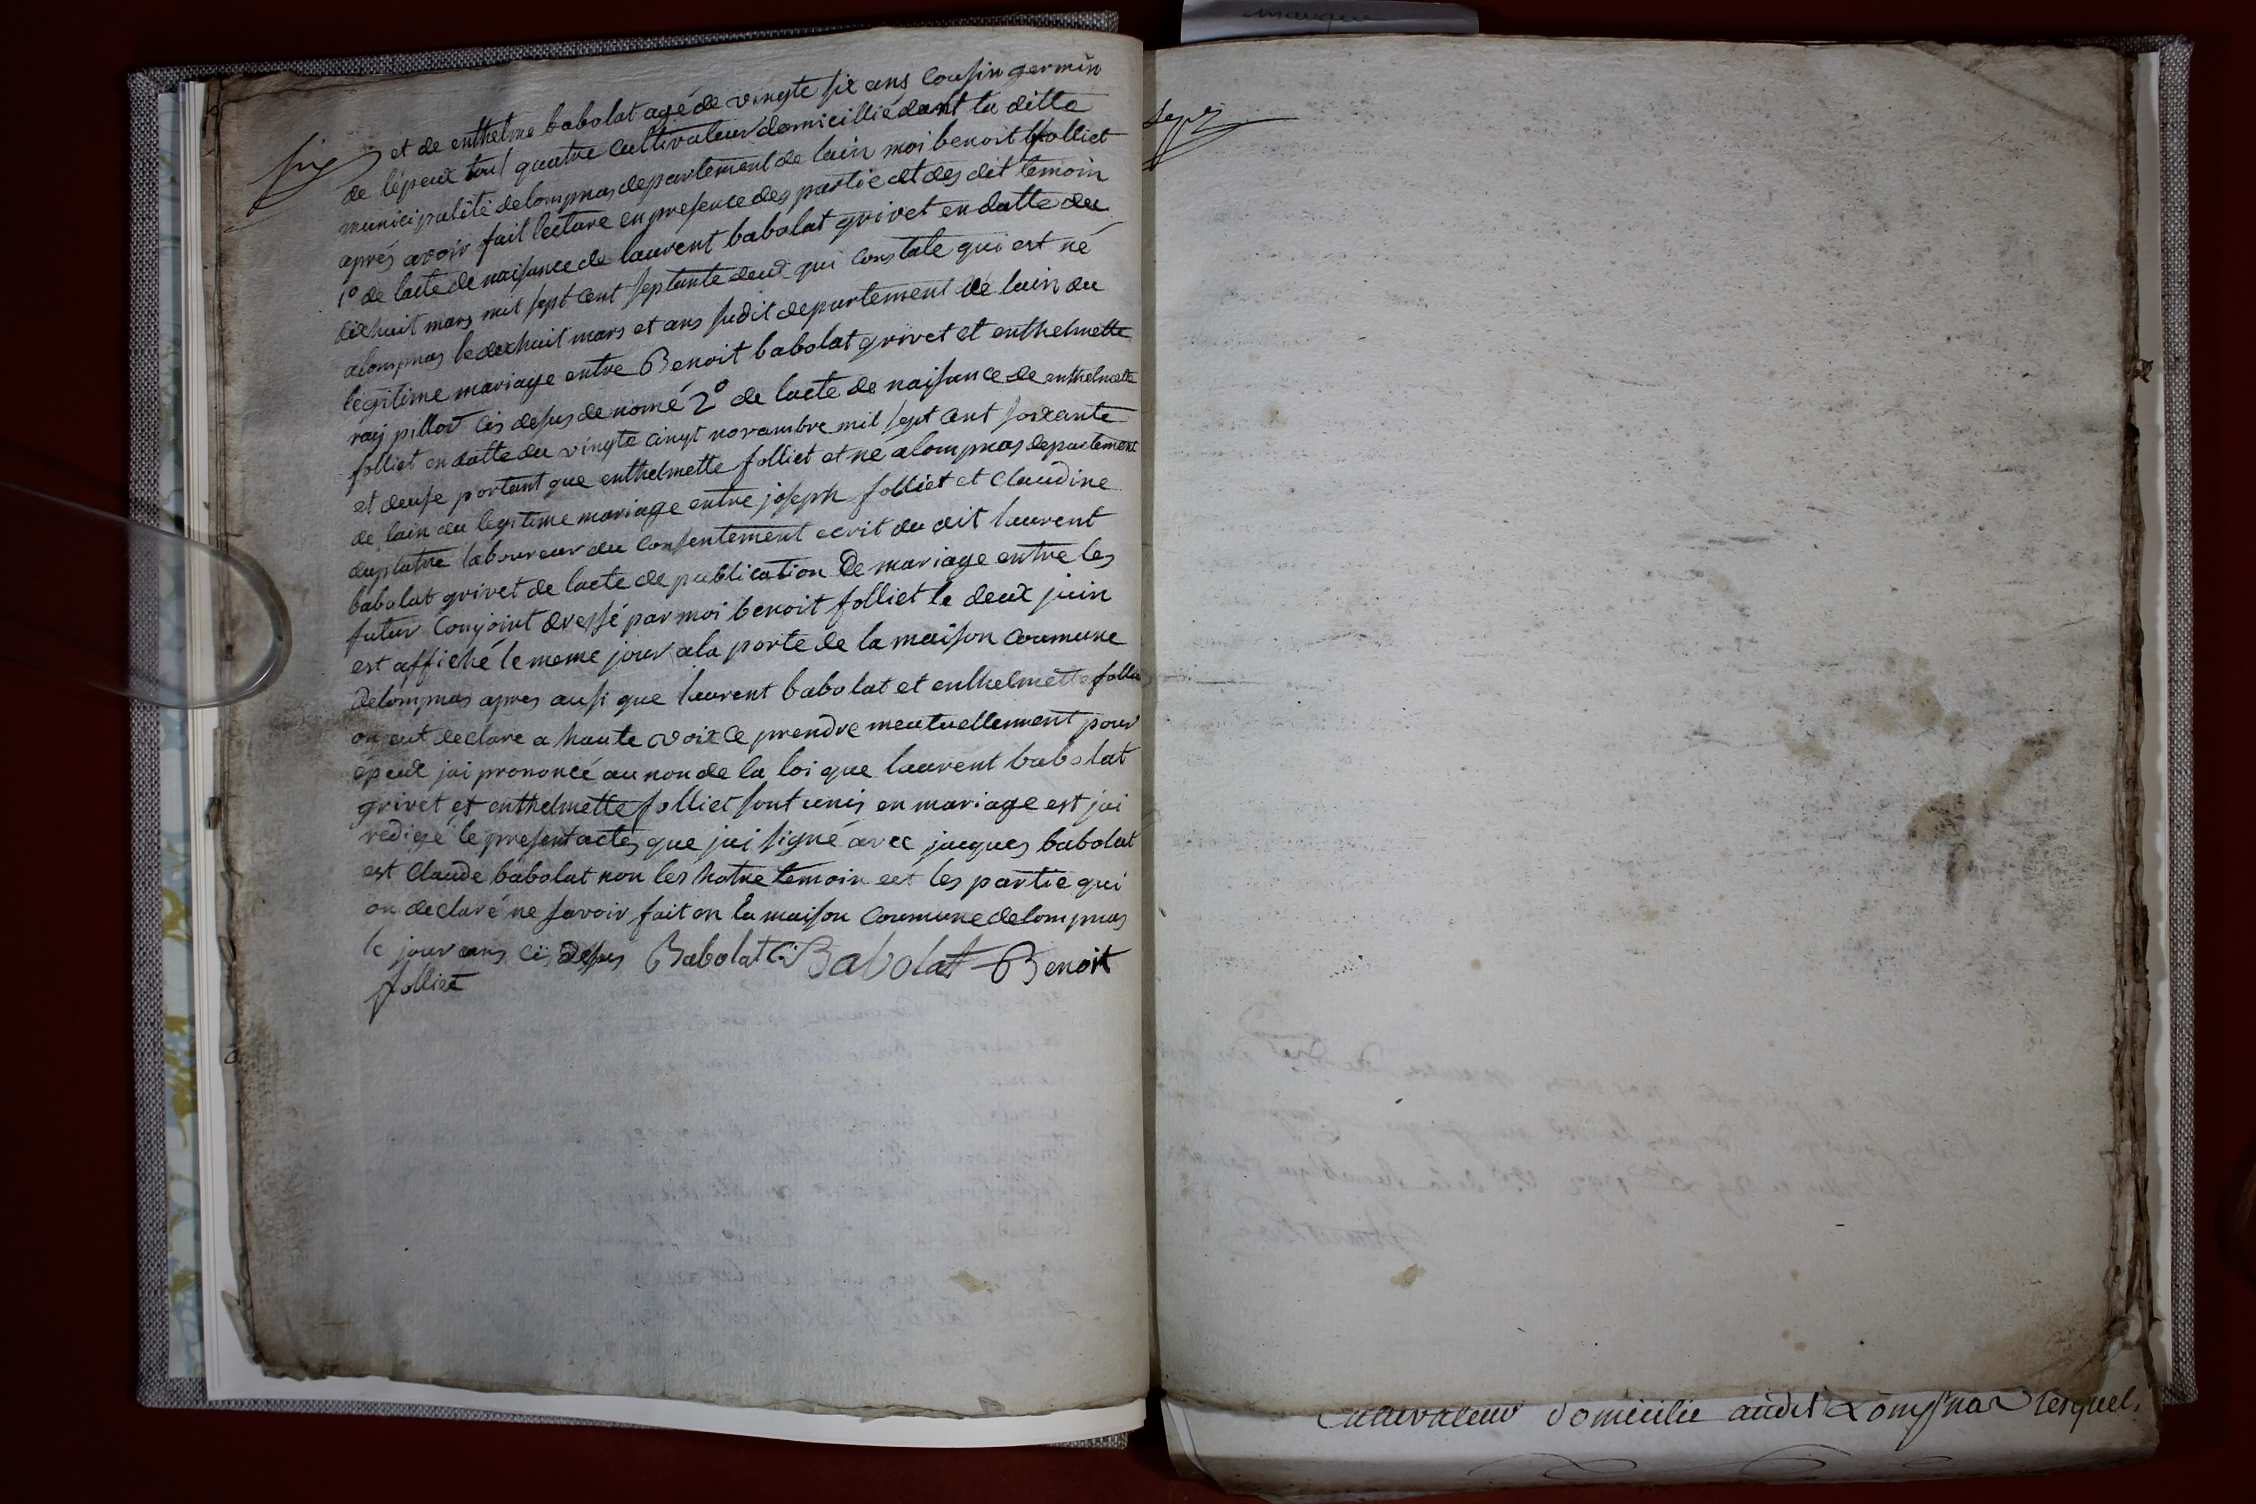 six
et de enthelme babolat agé de vingte six ans cousin germin
de lépeux tous quatre cultivateur domicillié dant la ditte
municipalité de lompnas departement de lain moi benoit folliet
aprés avoir fait lecture en presence des partie et des dit temoin
1º de lacte de naisance de laurent babolat grivet en datte du
dixhuit mars mil sept cent septante deux qui constate qui est né
a lompnas le dexhuit mars et ans sudit departement de lain du
légitime mariage entre Benoit babolat grivet et enthelmette
raÿ pillot cis desus de nomé 2º de lacte de naisance de enthelmette
folliet en datte du vingte cinqt novambre mil sept cent soixante
et deuse portant que enthelmette folliet et né a lompnas departement
de lain du legitime mariage entre joseph folliet et claudine
duplatre laboureur du consentement ecrit du dit laurent
babolat grivet de lacte de publication de mariage entre les
futur conjoint dressé par moi benoit folliet le deux juin
est affiché le meme jour a la porte de la maison coumune
de lompnas apres ausi que laurent babolat et enthelmette folliet
on eut declare a haute voix ce prendre meutuellement pour
épeux jai prononcé au non de la loi que laurent babolat
grivet et enthelmette folliet sont unis en mariage est jai
redigé le present actes que jai signé avec jacques babolat
est claude babolat non les hotre temoin eet les partie qui
on declaré ne savoir fait on la maison coumune de lompnas
le jour ans cis desus Babolat C. Babolat Benoit
folliet
sept
cultivateur domicilie audit Lompnas lesquel